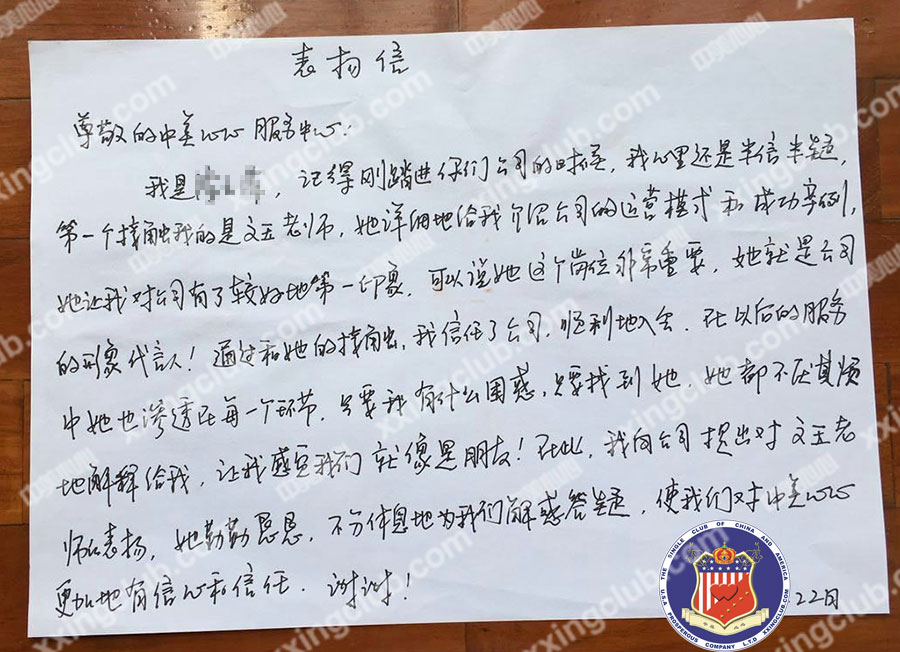 表扬信
尊敬的中美心心服务中心:
我是 , 记得刚踏进你们公司的时候, 我心里还是半信半疑,
第一个接触我的是文玉老师, 她详细地给我介绍公司的运营模式和成功案例,
她让我对公司有了较好地第一印象. 可以说她这个岗位非常重要, 她就是公司
的形象代言人! 通过和她的接触, 我信任了公司, 顺利地入会. 在以后的服务
中她也渗透在每一个环节. 只要我有什么困惑, 只要找到她, 她都不厌其烦
地解释给我, 让我感觉我们就像是朋友! 在此, 我向公司提出对文玉老
师的表扬, 她勤勤恳恳, 不分休息地为我们解惑答疑, 使我们对中美心心
更加地有信心和信任. 谢谢!
22日
THE SINGLE CLUB OF CHINA AND AMERICA
U.S.A PROSPEROUS COMPANY L.T.D XXINGCLUB.COM
中美心心
xxingclub.com